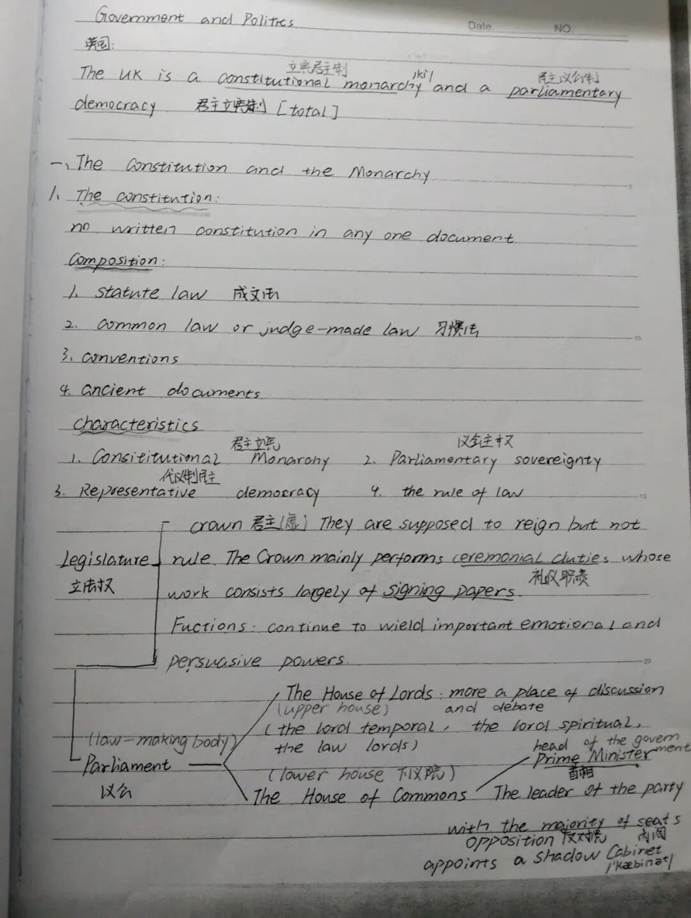 Government and Politics
Date. NO.
英国:
立宪君主制 /ki/ 民主议会制
The UK is a constitutional monarchy and a parliamentary
democracy 君主立宪制 [total]
一、The Constitution and the Monarchy
1. The constitution:
no written constitution in any one document
Composition:
1. statute law 成文法
2. common law or judge-made law 习惯法
3. conventions
4. ancient documents
characteristics
君主立宪 议会主权
1. Consititutional Monarchy 2. Parliamentary sovereignty
代议制民主
3. Representative democracy 4. the rule of law
crown 君主(虚) They are supposed to reign but not
Legislature rule. The Crown mainly performs ceremonial duties whose
立法权 礼仪职责
work consists largely of signing papers.
Fuctions: continue to wield important emotional and
persuasive powers.
The House of Lords: more a place of discussion
(upper house) and debate
(the lord temporal, the lord spiritual,
the law lords)
(law-making body)
Parliament
议会
head of the government
(lower house 下议院) Prime Minister
首相
The House of Commons The leader of the party
with the majority of seats
opposition 反对党 内阁
appoints a shadow Cabinet
/'kæbinət/